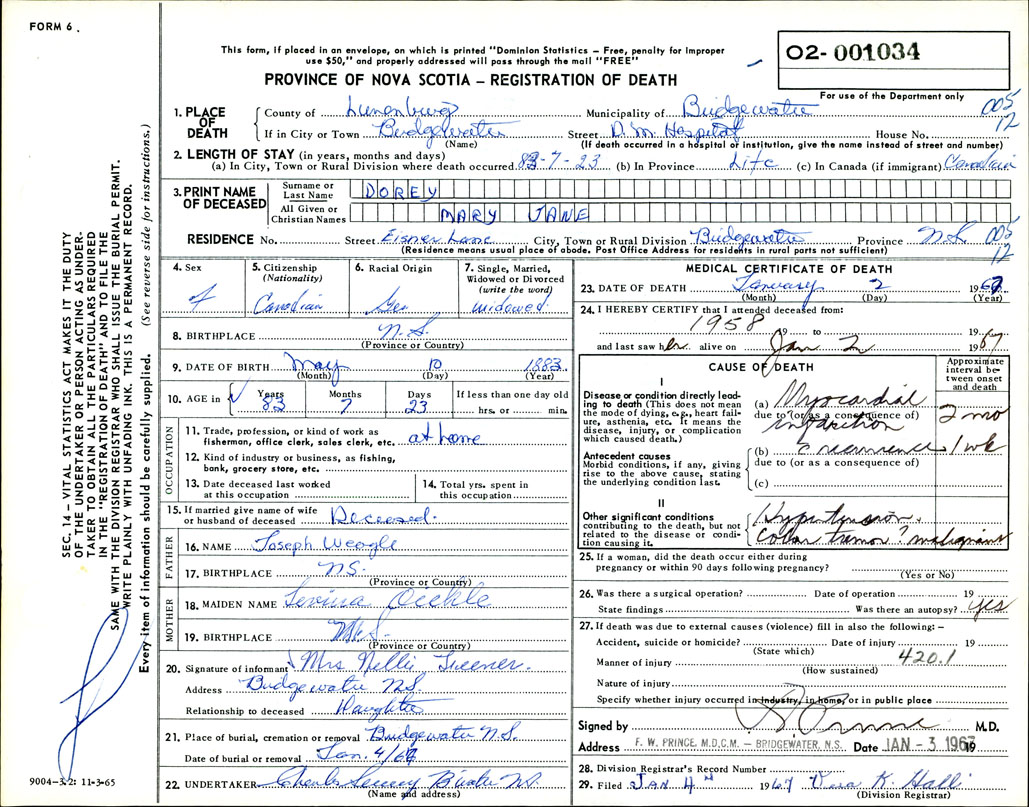 FORM 6.
This form, if placed in an envelope, on which is printed "Dominion Statistics – Free, penalty for improper
use $50," and properly addressed will pass through the mail "FREE"
PROVINCE OF NOVA SCOTIA – REGISTRATION OF DEATH
O2- 001034
For use of the Department only
005
12
1. PLACE OF DEATH
County of Lunenburg Municipality of Bridgewater
If in City or Town Bridgewater Street D. M. Hospital House No.
(Name) (If death occurred in a hospital or institution, give the name instead of street and number)
2. LENGTH OF STAY (in years, months and days)
(a) In City, Town or Rural Division where death occurred 83-7-23 (b) In Province Life (c) In Canada (if immigrant) Canadian
3. PRINT NAME OF DECEASED
Surname or Last Name DOREY
All Given or Christian Names MARY JANE
RESIDENCE No. Street Eisner Lane City, Town or Rural Division Bridgewater Province N.S. 005
12
(Residence means usual place of abode. Post Office Address for residents in rural parts not sufficient)
4. Sex f
5. Citizenship (Nationality) Canadian
6. Racial Origin Ger
7. Single, Married, Widowed or Divorced (write the word) widowed
8. BIRTHPLACE N.S.
(Province or Country)
9. DATE OF BIRTH May 10 1883
(Month) (Day) (Year)
10. AGE in Years 83 Months 7 Days 23 If less than one day old hrs. or min.
OCCUPATION
11. Trade, profession, or kind of work as fisherman, office clerk, sales clerk, etc. at home
12. Kind of industry or business, as fishing, bank, grocery store, etc.
13. Date deceased last worked at this occupation
14. Total yrs. spent in this occupation
15. If married give name of wife or husband of deceased Deceased.
FATHER
16. NAME Joseph Weagle
17. BIRTHPLACE N.S.
(Province or Country)
MOTHER
18. MAIDEN NAME Levina Oickle
19. BIRTHPLACE N.S.
(Province or Country)
20. Signature of informant Mrs Nellie
Address Bridgewater N.S.
Relationship to deceased Daughter
21. Place of burial, cremation or removal Bridgewater N.S.
Date of burial or removal Jan. 4/67
22. UNDERTAKER
(Name and address)
MEDICAL CERTIFICATE OF DEATH
23. DATE OF DEATH January 2 1967
(Month) (Day) (Year)
24. I HEREBY CERTIFY that I attended deceased from:
1958 19 to 19
and last saw her alive on Jan 2 1967
CAUSE OF DEATH
Approximate interval between onset and death
I
Disease or condition directly leading to death (This does not mean the mode of dying, e.g., heart failure, asthenia, etc. It means the disease, injury, or complication which caused death.)
(a) Myocardial
due to (or as a consequence of)
infarction
2 mo
Antecedent causes
Morbid conditions, if any, giving rise to the above cause, stating the underlying condition last.
(b) recurrence 1 wk
due to (or as a consequence of)
(c)
II
Other significant conditions
contributing to the death, but not related to the disease or condition causing it.
Hypertension.
Colon tumor ? malignant
25. If a woman, did the death occur either during
pregnancy or within 90 days following pregnancy?
(Yes or No)
26. Was there a surgical operation? Date of operation 19
State findings Was there an autopsy? yes
27. If death was due to external causes (violence) fill in also the following: –
Accident, suicide or homicide? Date of injury 19
(State which)
420.1
Manner of injury
(How sustained)
Nature of injury
Specify whether injury occurred in industry, in home, or in public place
Signed by Prince M.D.
Address F. W. PRINCE, M.D.C.M. – BRIDGEWATER, N.S. Date JAN - 3 1967 19
28. Division Registrar's Record Number
29. Filed JAN 4th 1967
(Division Registrar)
SEC. 14 – VITAL STATISTICS ACT MAKES IT THE DUTY
OF THE UNDERTAKER OR PERSON ACTING AS UNDER-
TAKER TO OBTAIN ALL THE PARTICULARS REQUIRED
IN THE "REGISTRATION OF DEATH" AND TO FILE THE
SAME WITH THE DIVISION REGISTRAR WHO SHALL ISSUE THE BURIAL PERMIT.
WRITE PLAINLY WITH UNFADING INK. THIS IS A PERMANENT RECORD.
Every item of information should be carefully supplied. (See reverse side for instructions.)
9004-3.2: 11-3-65